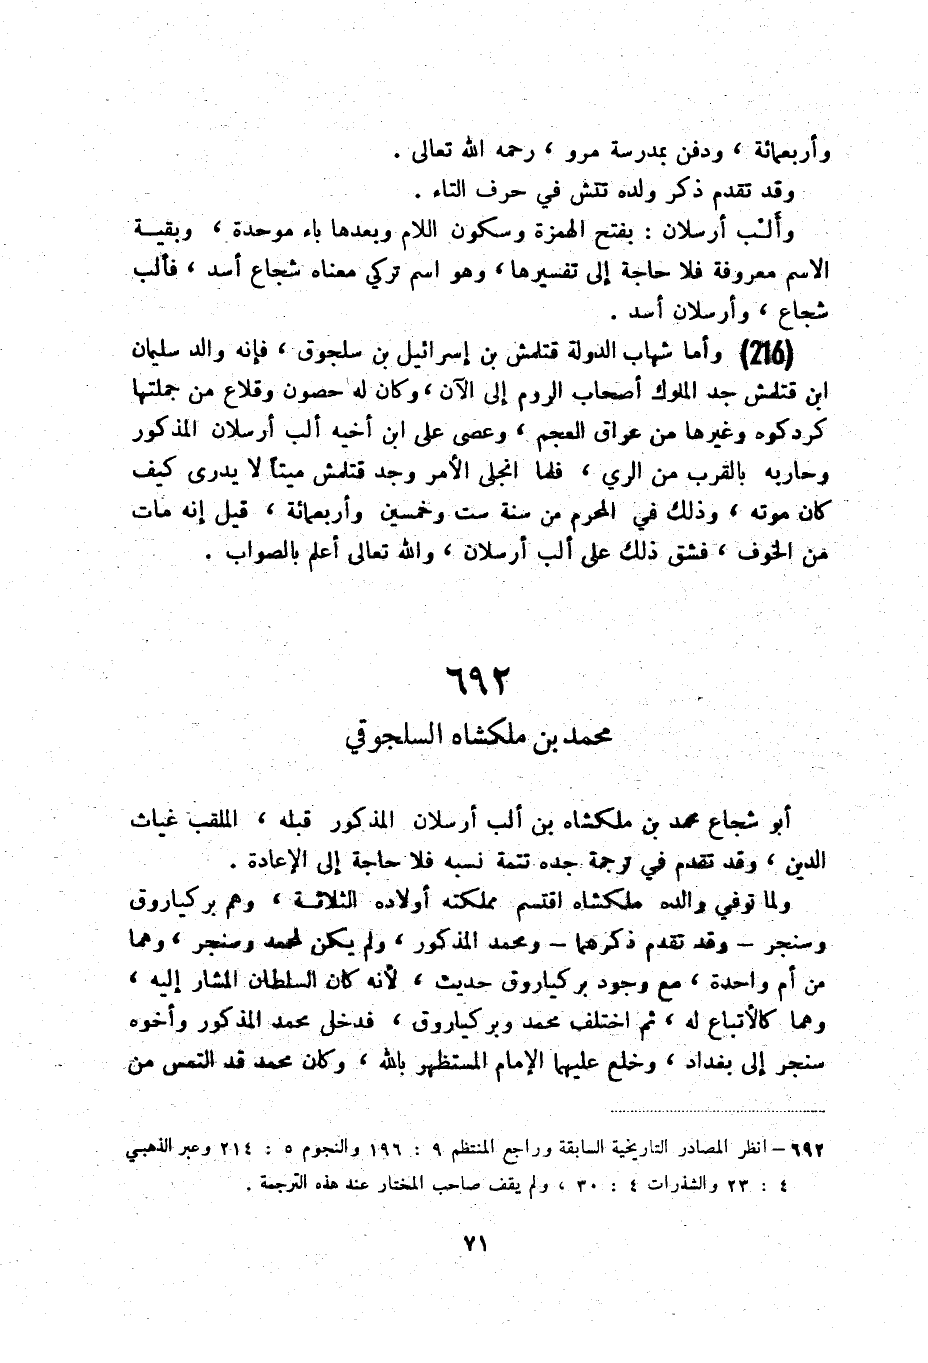 وأربعمائة ، ودفن بمدرسة مرو ، رحمه الله تعالى .
وقد تقدم ذكر ولده تتش في حرف التاء .
وأَلْب أرسلان : بفتح الهمزة وسكون اللام وبعدها باء موحدة ، وبقيـة
الاسم معروفة فلا حاجة إلى تفسيرها ، وهو اسم تركي معناه شجاع أسد ، فألب
شجاع ، وأرسلان أسد .
(216) وأما شهاب الدولة قتلمش بن إسرائيل بن سلجوق ، فإنه والد سليمان
ابن قتلمش جد الملوك أصحاب الروم إلى الآن ، وكان له حصون وقلاع من جملتها
كردكوه وغيرها من عراق العجم ، وعصى على ابن أخيه ألب أرسلان المذكور
وحاربه بالقرب من الري ، فلما انجلى الأمر وجد قتلمش ميتاً لا يدرى كيف
كان موته ، وذلك في المحرم من سنة ست وخمسين وأربعمائة ، قيل إنه مات
من الخوف ، فشق ذلك على ألب أرسلان ، والله تعالى أعلم بالصواب .
٦٩٢
محمد بن ملكشاه السلجوقي
أبو شجاع محمد بن ملكشاه بن ألب أرسلان المذكور قبله ، الملقب غياث
الدين ، وقد تقدم في ترجمة جده تتمة نسبه فلا حاجة إلى الإعادة .
ولما توفي والده ملكشاه اقتسم مملكته أولاده الثلاثـة ، وهم بركياروق
وسنجر – وقد تقدم ذكرهما – ومحمد المذكور ، ولم يكن لمحمد وسنجر ، وهما
من أم واحدة ، مع وجود بركياروق حديث ، لأنه كان السلطان المشار إليه ،
وهما كالأتباع له ، ثم اختلف محمد وبركياروق ، فدخل محمد المذكور وأخوه
سنجر إلى بغداد ، وخلع عليهما الإمام المستظهر بالله ، وكان محمد قد التمس من
٦٩٢ – انظر المصادر التاريخية السابقة وراجع المنتظم ٩ : ١٩٦ والنجوم ٥ : ٢١٤ وعبر الذهبي
٤ : ٢٣ والشذرات ٤ : ٣٠ ، ولم يقف صاحب المختار عند هذه الترجمة .
٧١